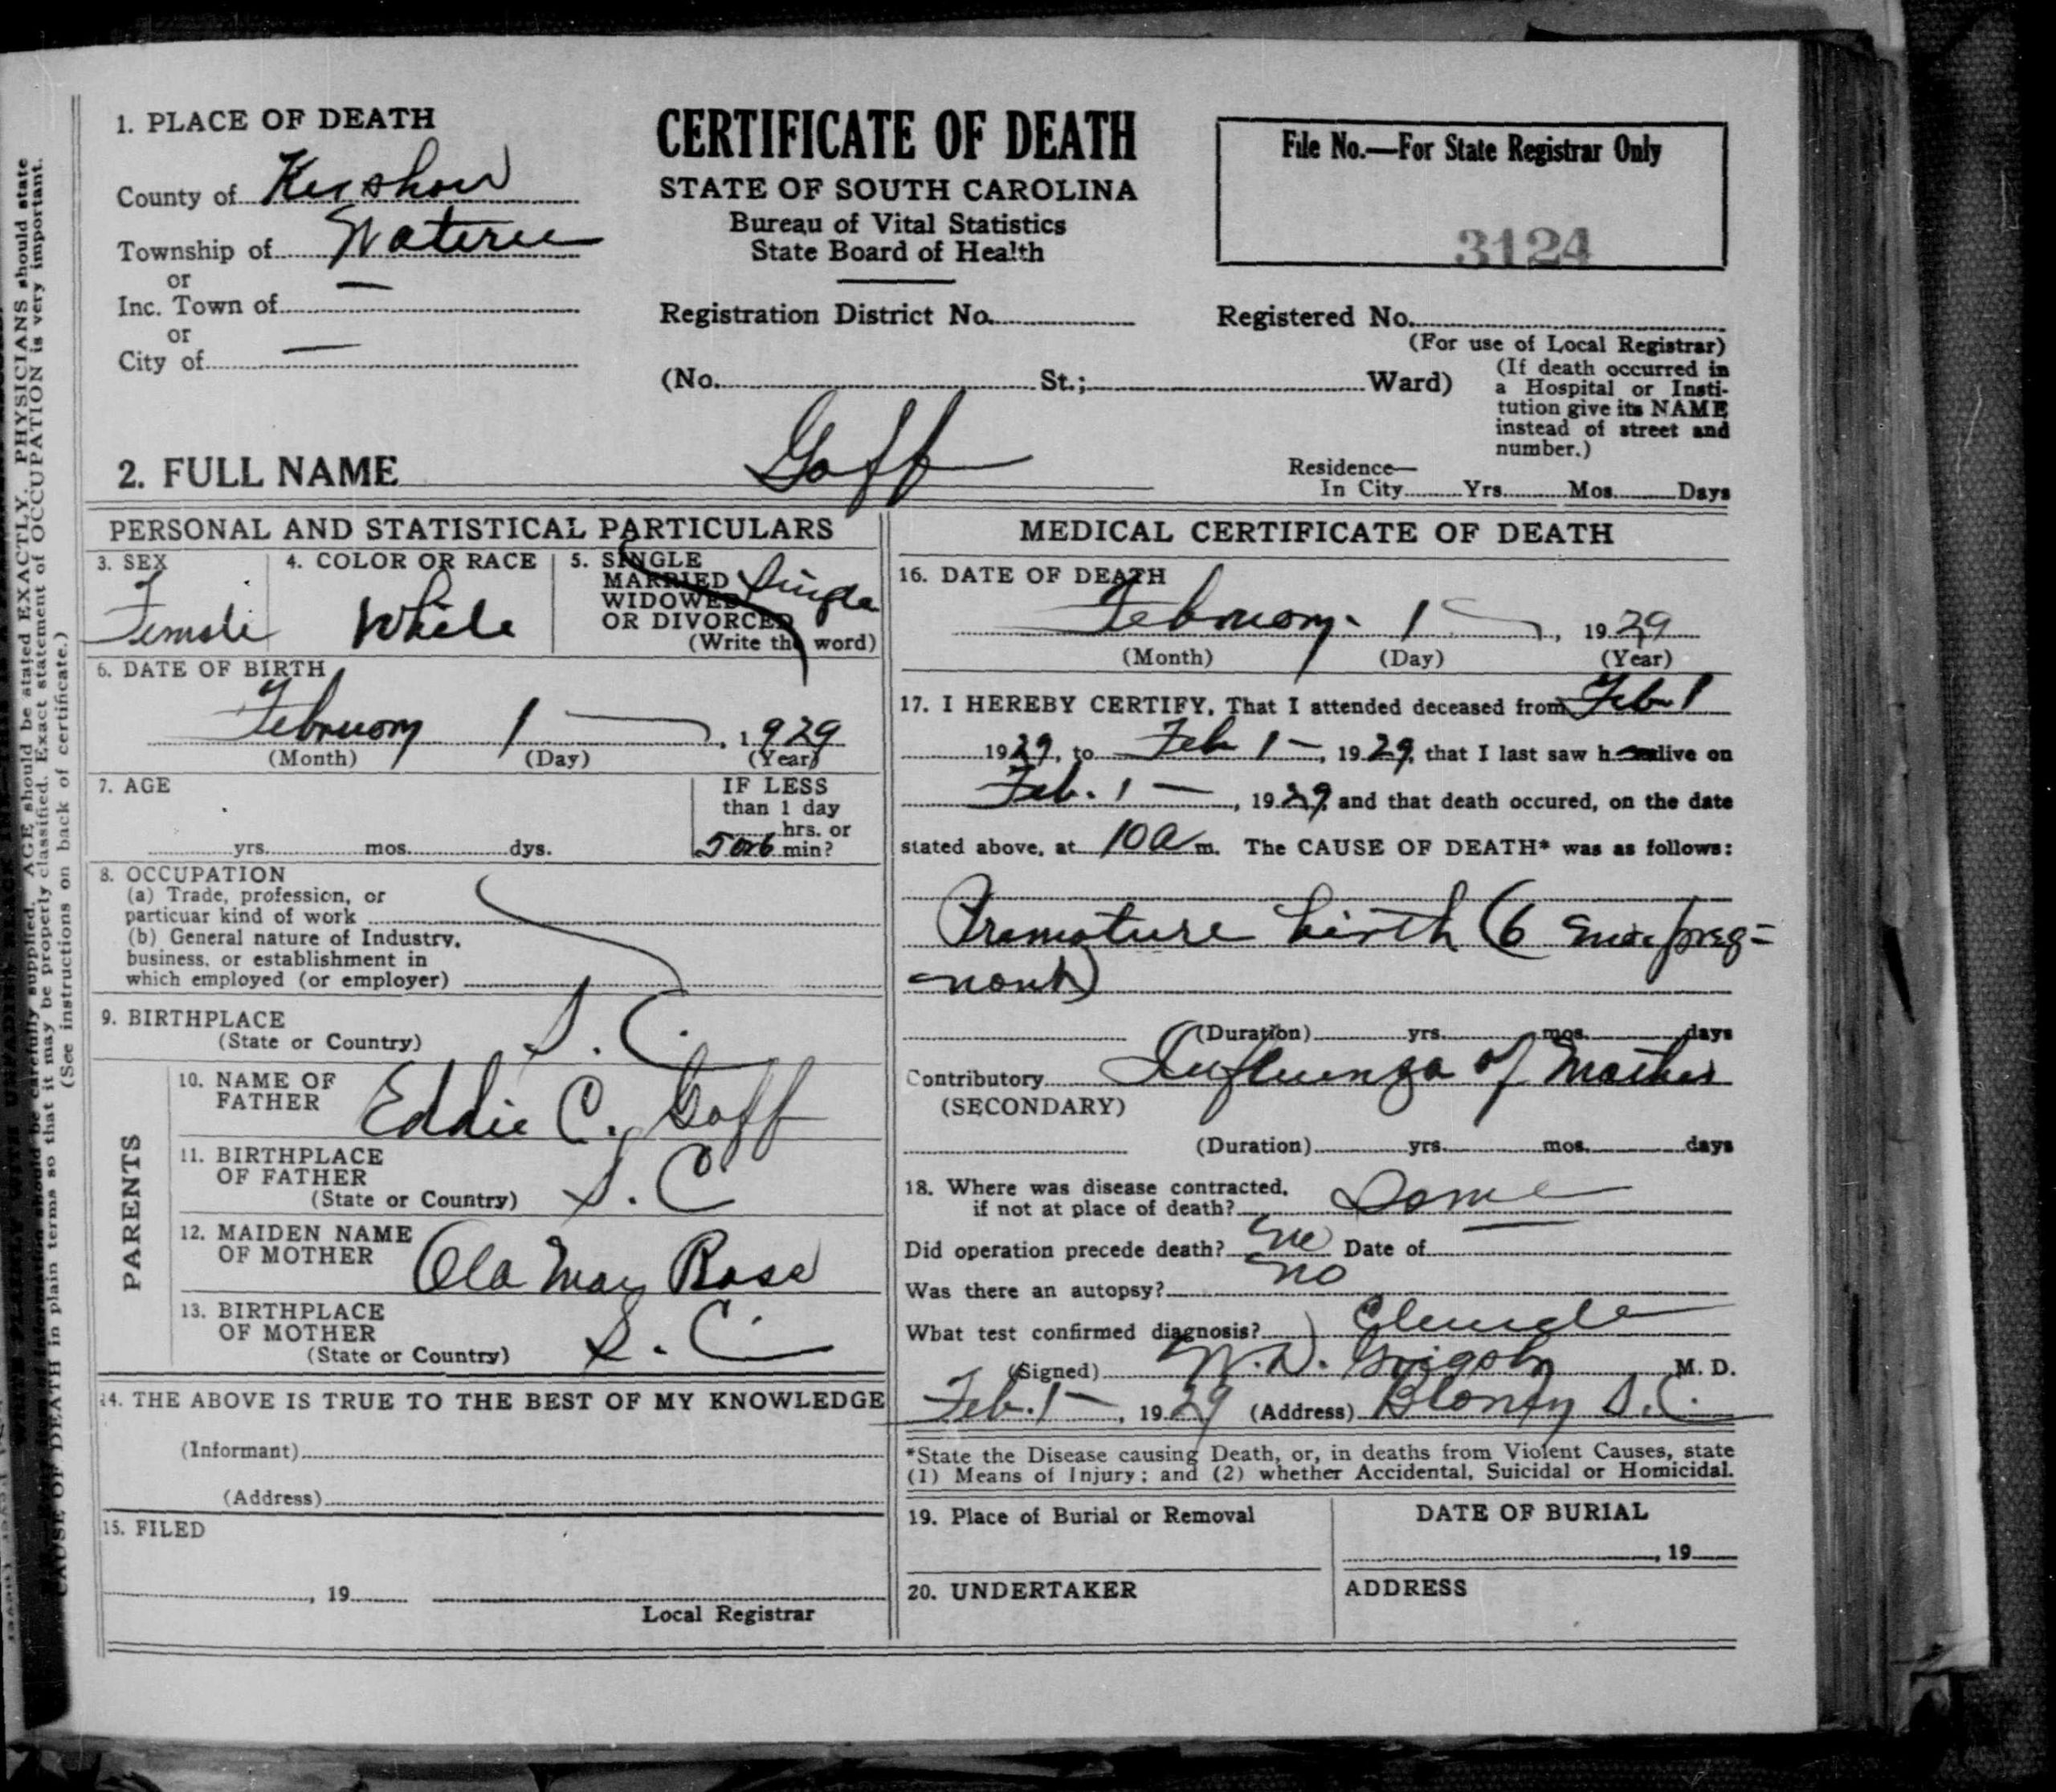 1. PLACE OF DEATH
County of Kershaw
Township of Wateree
or
Inc. Town of —
or
City of —
CERTIFICATE OF DEATH
STATE OF SOUTH CAROLINA
Bureau of Vital Statistics
State Board of Health
File No.—For State Registrar Only
3124
Registration District No.
Registered No.
(For use of Local Registrar)
(No. St.; Ward)
(If death occurred in
a Hospital or Insti-
tution give its NAME
instead of street and
number.)
2. FULL NAME Goff
Residence—
In City Yrs. Mos. Days
PERSONAL AND STATISTICAL PARTICULARS
3. SEX
Female
4. COLOR OR RACE
White
5. SINGLE
MARRIED
WIDOWED
OR DIVORCED
(Write the word)
Single
6. DATE OF BIRTH
February 1 , 1929
(Month) (Day) (Year)
7. AGE
yrs. mos. dys.
IF LESS
than 1 day
hrs. or
5 or 6 min?
8. OCCUPATION
(a) Trade, profession, or
particuar kind of work
(b) General nature of Industry,
business, or establishment in
which employed (or employer)
9. BIRTHPLACE
(State or Country) S. C.
PARENTS
10. NAME OF
FATHER Eddie C. Goff
11. BIRTHPLACE
OF FATHER
(State or Country) S. C
12. MAIDEN NAME
OF MOTHER Ola May Rose
13. BIRTHPLACE
OF MOTHER
(State or Country) S. C.
14. THE ABOVE IS TRUE TO THE BEST OF MY KNOWLEDGE
(Informant)
(Address)
15. FILED
, 19
Local Registrar
MEDICAL CERTIFICATE OF DEATH
16. DATE OF DEATH
February 1 , 1929
(Month) (Day) (Year)
17. I HEREBY CERTIFY, That I attended deceased from Feb 1
1929, to Feb 1 — , 1929, that I last saw h alive on
Feb. 1 — , 1929 and that death occured, on the date
stated above, at 10 a m. The CAUSE OF DEATH* was as follows:
Premature birth (6 mos preg=
nant)
(Duration) yrs. mos. days
Contributory Influenza of Mother
(SECONDARY)
(Duration) yrs. mos. days
18. Where was disease contracted,
if not at place of death? Same
Did operation precede death? no Date of
Was there an autopsy? no
What test confirmed diagnosis?
(Signed) W. D. Grigsby M. D.
Feb. 1 — , 1929 (Address) Blaney S. C.
*State the Disease causing Death, or, in deaths from Violent Causes, state
(1) Means of Injury; and (2) whether Accidental, Suicidal or Homicidal.
19. Place of Burial or Removal
DATE OF BURIAL
, 19
20. UNDERTAKER
ADDRESS
AGE should be stated EXACTLY. PHYSICIANS should state
CAUSE OF DEATH in plain terms so that it may be properly classified. Exact statement of OCCUPATION is very important.
(See instructions on back of certificate.)